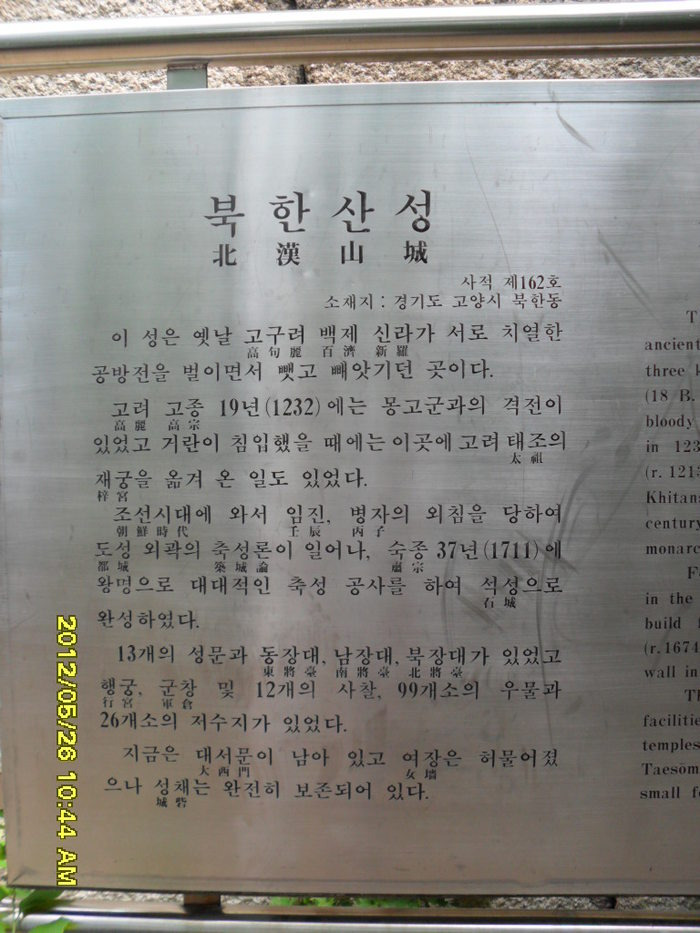 북한산성
北漢山城
사적 제162호
소재지 : 경기도 고양시 북한동
이 성은 옛날 고구려 백제 신라가 서로 치열한
高句麗 百濟 新羅
공방전을 벌이면서 뺏고 빼앗기던 곳이다.
고려 고종 19년(1232)에는 몽고군과의 격전이
高麗 高宗
있었고 거란이 침입했을 때에는 이곳에 고려 태조의
太祖
재궁을 옮겨 온 일도 있었다.
梓宮
조선시대에 와서 임진, 병자의 외침을 당하여
朝鮮時代 壬辰 丙子
도성 외곽의 축성론이 일어나, 숙종 37년(1711)에
都城 築城論 肅宗
왕명으로 대대적인 축성 공사를 하여 석성으로
石城
완성하였다.
13개의 성문과 동장대, 남장대, 북장대가 있었고
東將臺 南將臺 北將臺
행궁, 군창 및 12개의 사찰, 99개소의 우물과
行宮 軍倉
26개소의 저수지가 있었다.
지금은 대서문이 남아 있고 여장은 허물어졌
大西門 女墻
으나 성채는 완전히 보존되어 있다.
城砦
T
ancient
three k
(18 B.
bloody
in 123
(r. 1213
Khitan
century
monarc
F
in the
build
(r. 1674
wall in
Th
facilities
temples
Taesom
small fo
2012/05/26 10:44 AM